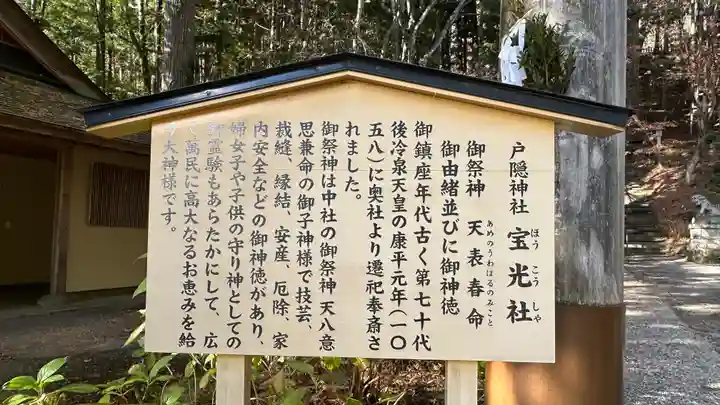 戸隠神社 宝光社
ほうこうしゃ
御祭神 天表春命
あめのうわはるのみこと
御由緒並びに御神徳
御鎮座年代古く第七十代
後冷泉天皇の康平元年(一〇
五八)に奥社より遷祀奉斎さ
れました。
御祭神は中社の御祭神 天八意
思兼命の御子神様で技芸、
裁縫、縁結、安産、厄除、家
内安全などの御神徳があり、
婦女子や子供の守り神としての
霊験もあらたかにして、広
く萬民に高大なるお恵みを給
う大神様です。